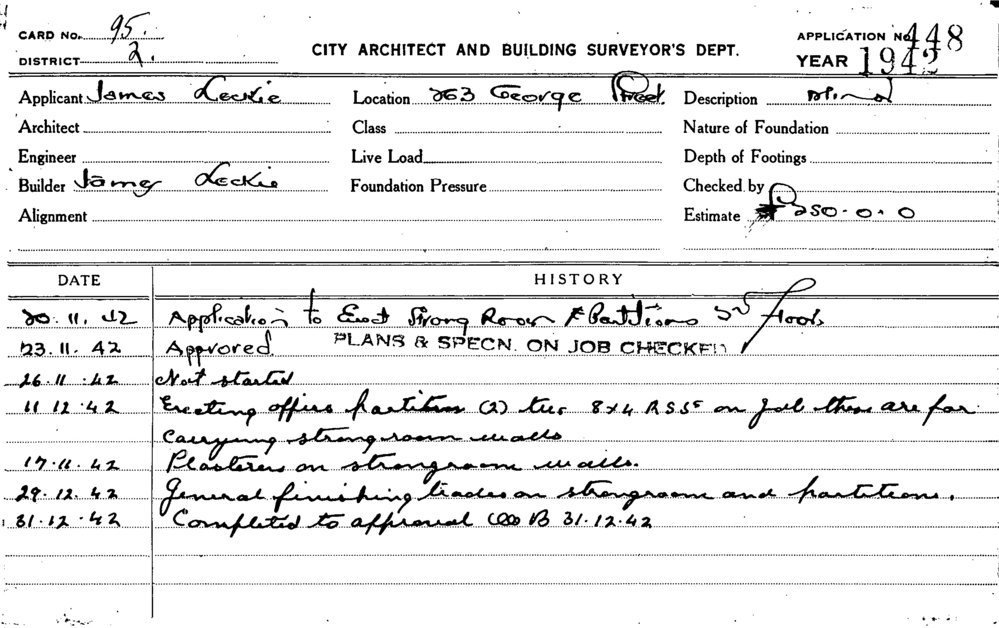 CARD No. 95.
DISTRICT 2.
CITY ARCHITECT AND BUILDING SURVEYOR'S DEPT.
APPLICATION No. 448
YEAR 1942
Applicant James Leckie
Location 263 George Street.
Description
Architect
Class
Nature of Foundation
Engineer
Live Load
Depth of Footings
Builder James Leckie
Foundation Pressure
Checked by
Alignment
Estimate £250.0.0
DATE HISTORY
20.11.42 Application to Erect Strong Room & Partitions 3rd Floor
23.11.42 Approved. PLANS & SPECN. ON JOB CHECKED
26.11.42 Not started
11 12.42 Erecting office partitions (2) 8x4 R S Js on job these are for
carrying strongroom walls
17.11.42 Plasterers on strongroom walls.
29.12.42 General finishing trades on strongroom and partitions.
31.12.42 Completed to approval 31.12.42